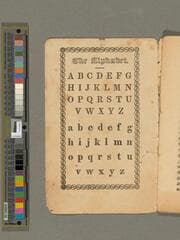 The Alphabet.
A B C D E F G
H I J K L M N
O P Q R S T U
V W X Y Z
a b c d e f g
h i j k l m n
o p q r s t u
v w x y z